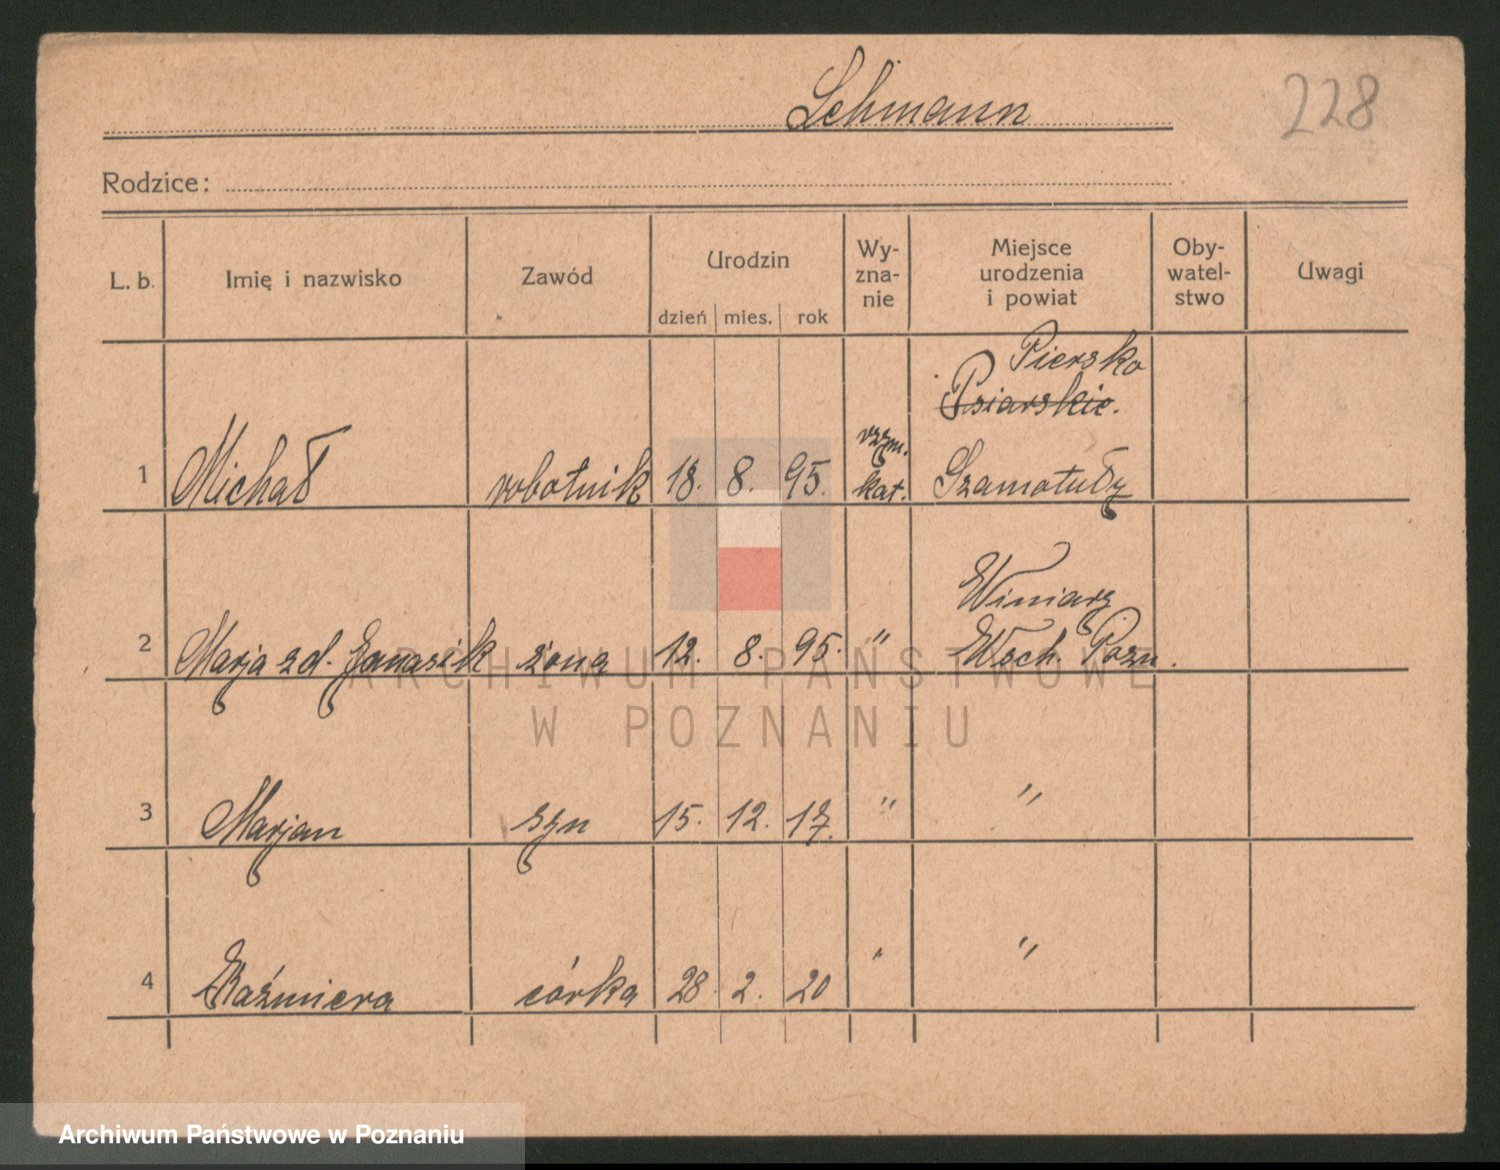 Lehmann
228
Rodzice:
L. b. Imię i nazwisko Zawód Urodzin dzień mies. rok Wy-zna-nie Miejsce urodzenia i powiat Oby-watel-stwo Uwagi
Piersko
Psiarskie.
1 Michał robotnik 18. 8. 95. rzym. kat. Szamotuły
Winiary
2 Marja zd. Janasik żona 12. 8. 95. " Wsch. Pozn.
3 Marjan syn 15. 12. 17. " "
4 Kaźmiera córka 28. 2. 20 " "
ARCHIWUM PAŃSTWOWE
W POZNANIU
Archiwum Państwowe w Poznaniu